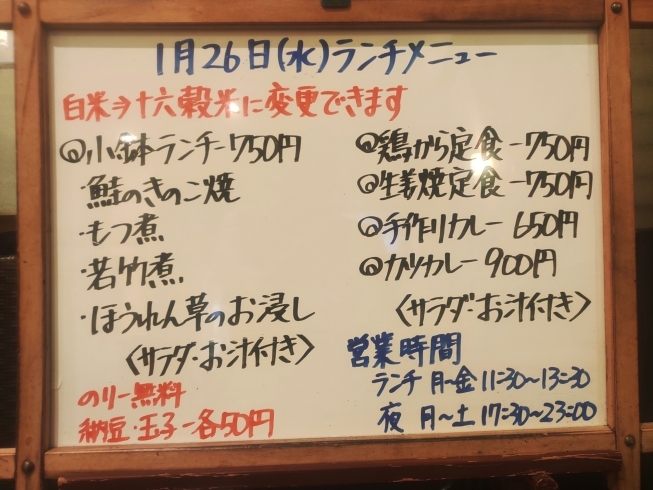 1月26日(水)ランチメニュー
白米⇒十六穀米に変更できます
◎小鉢ランチー750円
・鮭のきのこ焼
・もつ煮
・若竹煮
・ほうれん草のお浸し
〈サラダ・お汁付き〉
のりー無料
納豆・玉子ー各50円
◎鶏から定食ー750円
◎生姜焼定食ー750円
◎手作りカレー 650円
◎カツカレー 900円
〈サラダ・お汁付き〉
営業時間
ランチ 月~金 11:30~13:30
夜 月~土 17:30~23:00